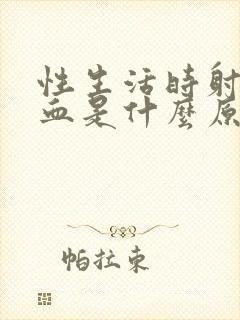 性生活時射
血是什麼原
帕拉東